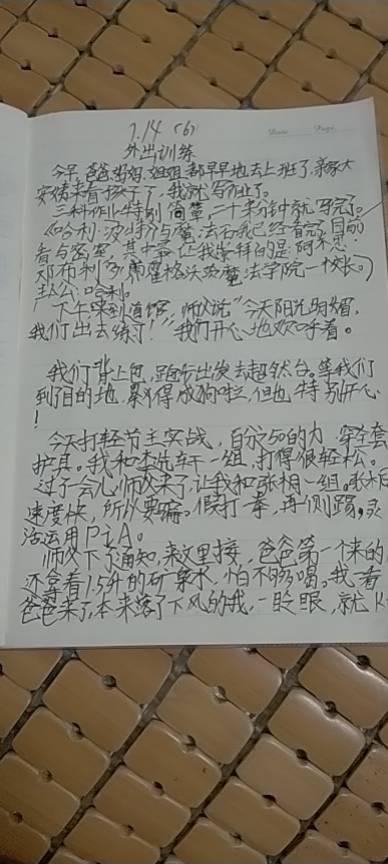 7.14 (6)
Date Page
外出训练
今早,爸爸妈妈,姐姐都早早地去上班了,亲家大
安倩来看孩子了,我就写作业了。
三科作业特别简单,一个来分钟就写完了。
《哈利·波特》与魔法石我已经看完,目前
看与密室,其中 让我崇拜的是 阿不思
邓布利多(霍格沃茨魔法学院—校长。)
主人公:哈利。
下午来到道馆,师父说"今天阳光明媚,
我们出去练习!"我们开心地欢呼着。
我们背上包,跑步出发去超然台。等我们
到目的地,累得成狗啦,但也特别开心
!
今天打轻节主实战,百分50的力,穿全套
护具。我和李洗车干一组,打得很轻松。
过了一会儿师父来了,让我和张相一组。张水后
速度快,所以要骗。假打一拳,再侧踢,灵
活运用P主A。
师父下了通知,来这里接,爸爸第一个来的
还拿着1.5升的矿泉水,怕不够喝。我看
爸爸来了,本来落了下风的我,一眨眼,就K